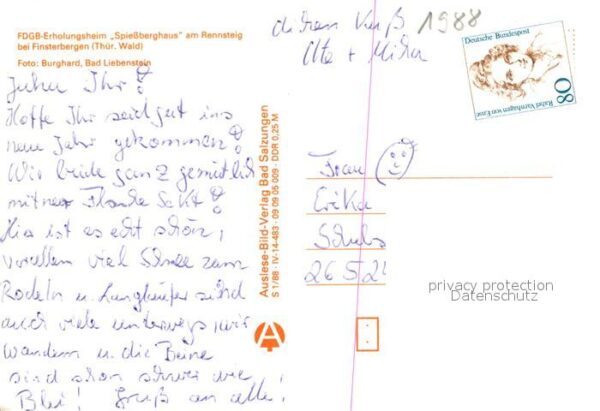 FDGB-Erholungsheim „Spießberghaus" am Rennsteig
bei Finsterbergen (Thür. Wald)
Foto: Burghard, Bad Liebenstein
Ihr!
Hoffe Ihr seid gut ins
neue Jahr gekommen!
Wir beide ganz gemütlich
mit ner Flasche Sekt!
Hier ist es echt schön,
vor allem viel Schnee zum
Rodeln u. Langläufer sind
auch viele unterwegs, wir
wandern u. die Beine
sind schon schwer wie
Blei! Gruß an alle!
Auslese-Bild-Verlag Bad Salzungen
S 1/88 · IV-14-483 · 09 09 05 009 · DDR 0,25 M
Ute +
1988
Deutsche Bundespost
Rahel Varnhagen von Ense
80
Frau
Erika
privacy protection
Datenschutz
A